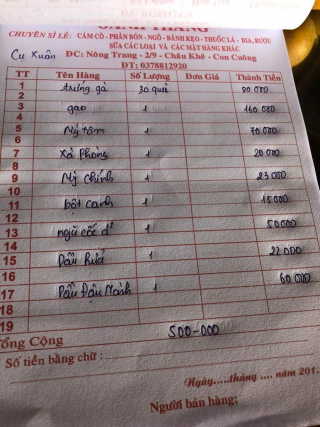 CHUYÊN SỈ LẺ: CÁM CÒ - PHÂN BÓN - NGÔ - BÁNH KẸO - THUỐC LÁ - BIA, RƯỢU
SỮA CÁC LOẠI VÀ CÁC MẶT HÀNG KHÁC
Cụ Xuân ĐC: Nông Trang - 2/9 - Châu Khê - Con Cuông
ĐT: 0378812920
TT Tên Hàng Số Lượng Đơn Giá Thành Tiền
1 trứng gà 30 quả 90 000
2
3 gạo 1 160 000
4
5 Mỳ tôm 1 70 000
6
7 Xà Phòng 1 20 000
8
9 Mỳ chính 1 23 000
10
11 bột canh 1 15 000
12
13 ngũ cốc 1 50000
14
15 Dầu Rửa 1 22 000
16
17 Dầu Đậu Nành 1 60 000
18
19
Tổng Cộng 500-000
Số tiền bằng chữ:
Ngày.....tháng .... năm 201
Người bán hàng: